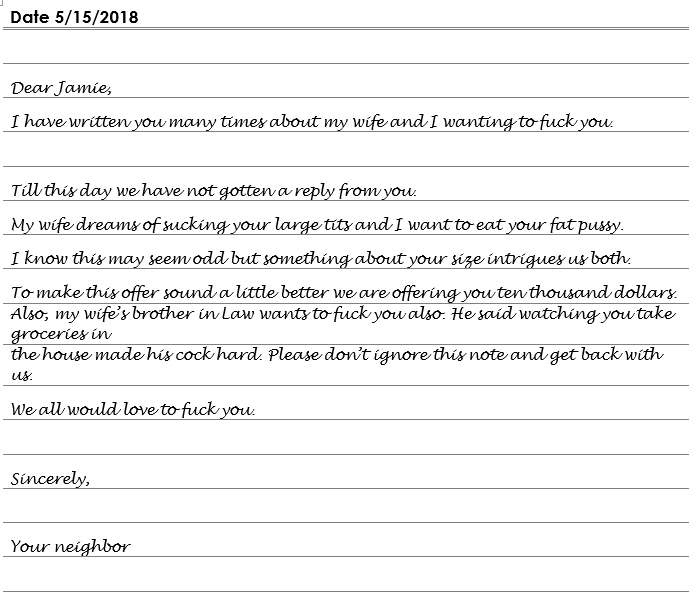 Date 5/15/2018
Dear Jamie,
I have written you many times about my wife and I wanting to fuck you.
Till this day we have not gotten a reply from you.
My wife dreams of sucking your large tits and I want to eat your fat pussy.
I know this may seem odd but something about your size intrigues us both.
To make this offer sound a little better we are offering you ten thousand dollars.
Also, my wife's brother in Law wants to fuck you also. He said watching you take
groceries in
the house made his cock hard. Please don't ignore this note and get back with
us.
We all would love to fuck you.
Sincerely,
Your neighbor